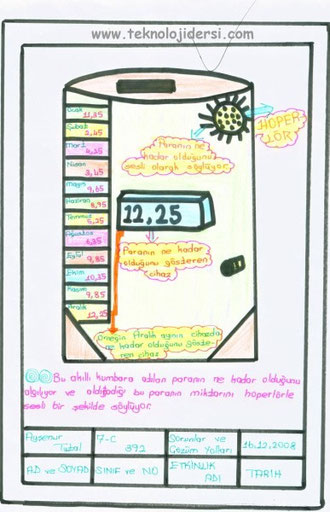 www.teknolojidersi.com
Ocak
11,25
Şubat
2,45
Mart
Nisan
3,45
Mayıs
9,65
Haziran
8,95
Temmuz
5,25
Ağustos
6,35
Eylül
9,85
Ekim
10,25
Kasım
9,85
Aralık
12,25
HOPER
LÖR
Paranın ne
kadar olduğunu
sesli olarak söylüyor.
12,25
Paranın ne kadar
olduğunu gösteren
cihaz
Örneğin Aralık ayının cihazda
ne kadar olduğunu göste-
ren cihaz
Bu akıllı kumbara atılan paranın ne kadar olduğunu
algılıyor ve aldığı bu paranın miktarını hoperlörle
sesli bir şekilde söylüyor.
Ayşenur
7-C
Sorunlar ve
16.12.2008
Tubal
892
Çözüm Yolları
AD ve SOYAD
SINIF ve NO
ETKİNLİK
TARİH
ADI